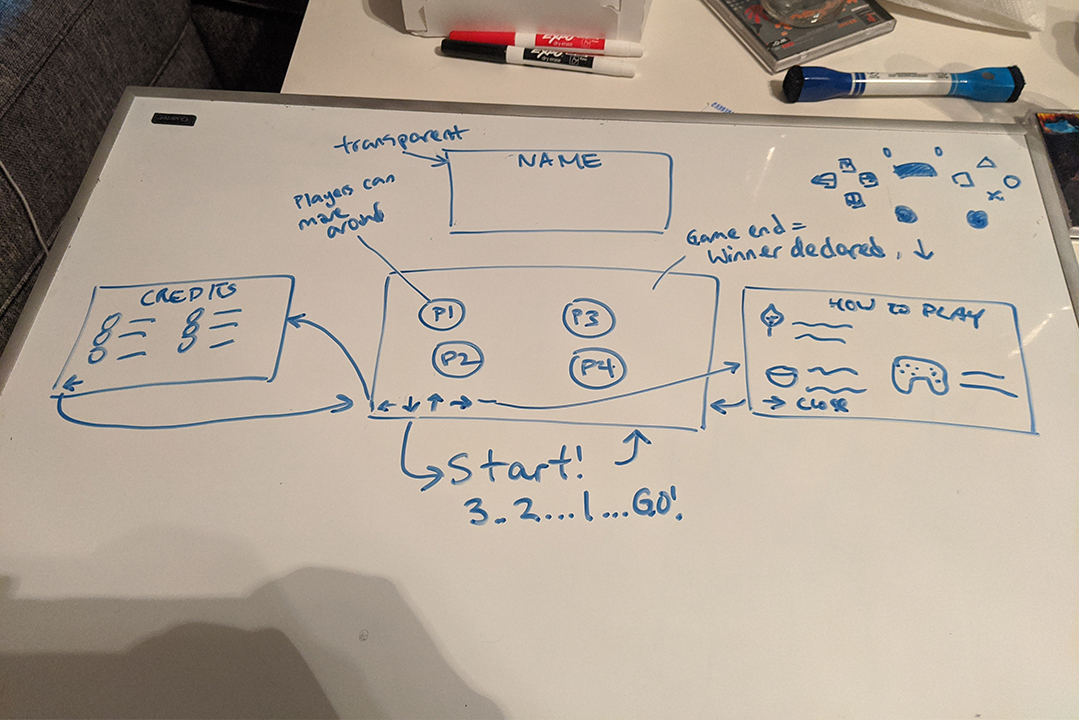 EXPO
EXPO
transparent
NAME
Players can
move
around
Game end =
Winner declared, ↓
CREDITS
P1
P3
P2
P4
← ↓ ↑ →
HOW TO PLAY
→ CLOSE
←
Start!
3.. 2.... 1 ... GO!